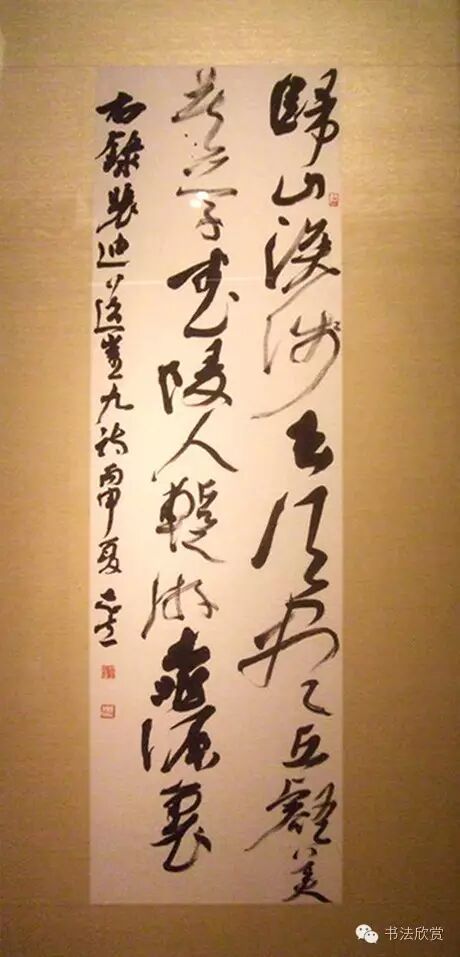 歸山深淺去須盡丘壑美
莫學武陵人暫游桃源裏
右錄裴迪送崔九詩丙申夏
书法欣赏